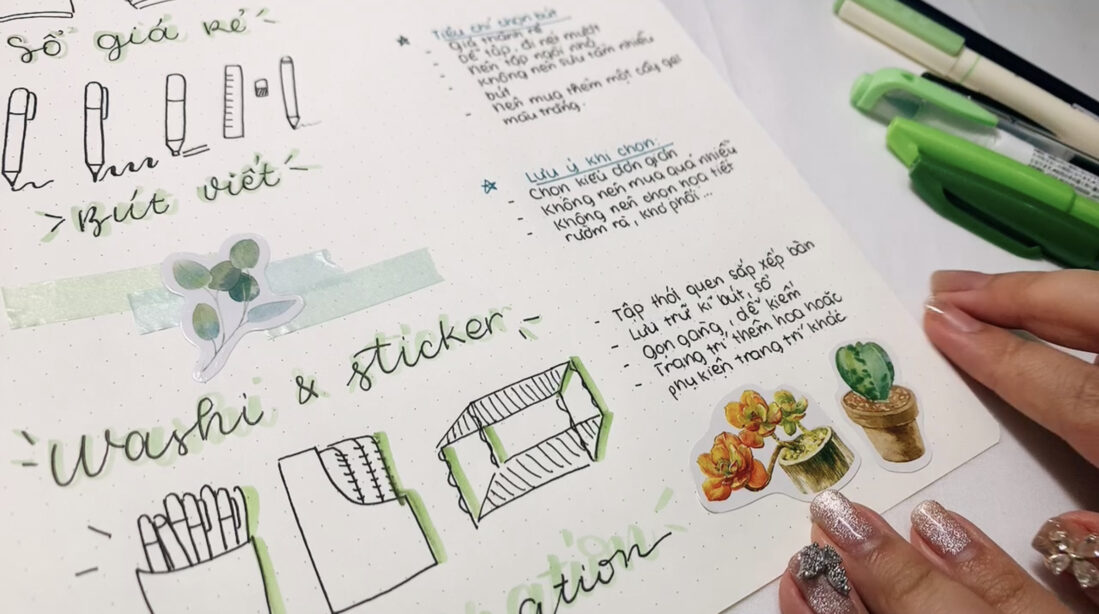 Sổ giá rẻ
Tiêu chí chọn bút
- Giá thành rẻ
- Dễ tập, đi nét mượt
- Nên tập ngòi nhỏ
- Không nên sưu tầm nhiều
bút.
- Nên mua thêm một cây gel
màu trắng.
Bút viết
Lưu ý khi chọn:
- Chọn kiểu đơn giản
- Không nên mua quá nhiều
- Không nên chọn họa tiết
rườm rà, khó phối...
Washi & sticker
- Tập thói quen sắp xếp bàn
- Lưu trữ kĩ bút, sổ
- gọn gàng, dễ kiếm
- Trang trí thêm hoa hoặc
phụ kiện trang trí khác
ation